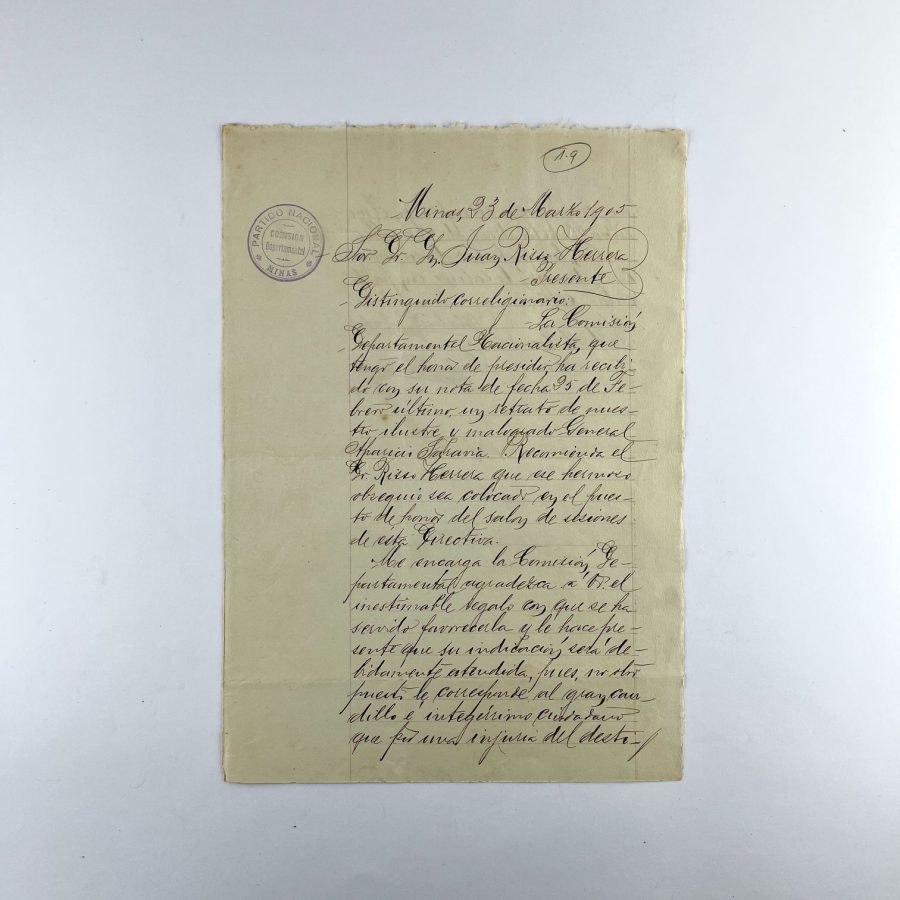 1-9
PARTIDO NACIONAL
COMISION
Departamental
MINAS
Minas, 23 de Marzo 1905
Sor. Dr. Dn. Juan Risso Herrera
Presente
Distinguido correligionario:
La Comisión
Departamental Nacionalista, que
tengo el honor de presidir, ha recibi-
do con su nota de fecha 25 de Fe-
brero último, un retrato de nues-
tro ilustre y malogrado General
Aparicio Saravia. Recomienda el
Dr. Risso Herrera que ese hermoso
obsequio sea colocado en el pues-
to de honor del salon de sesiones
de ésta Directiva.
Me encarga la Comisión De-
partamental agradezca á Vd. el
inestimable regalo con que se ha
servido favorecerla y le hace pre-
sente que su indicación será de-
bidamente atendida, pues, no otro
puesto le corresponde al gran cau-
dillo é integérrimo ciudadano
que por una injuria del desti-